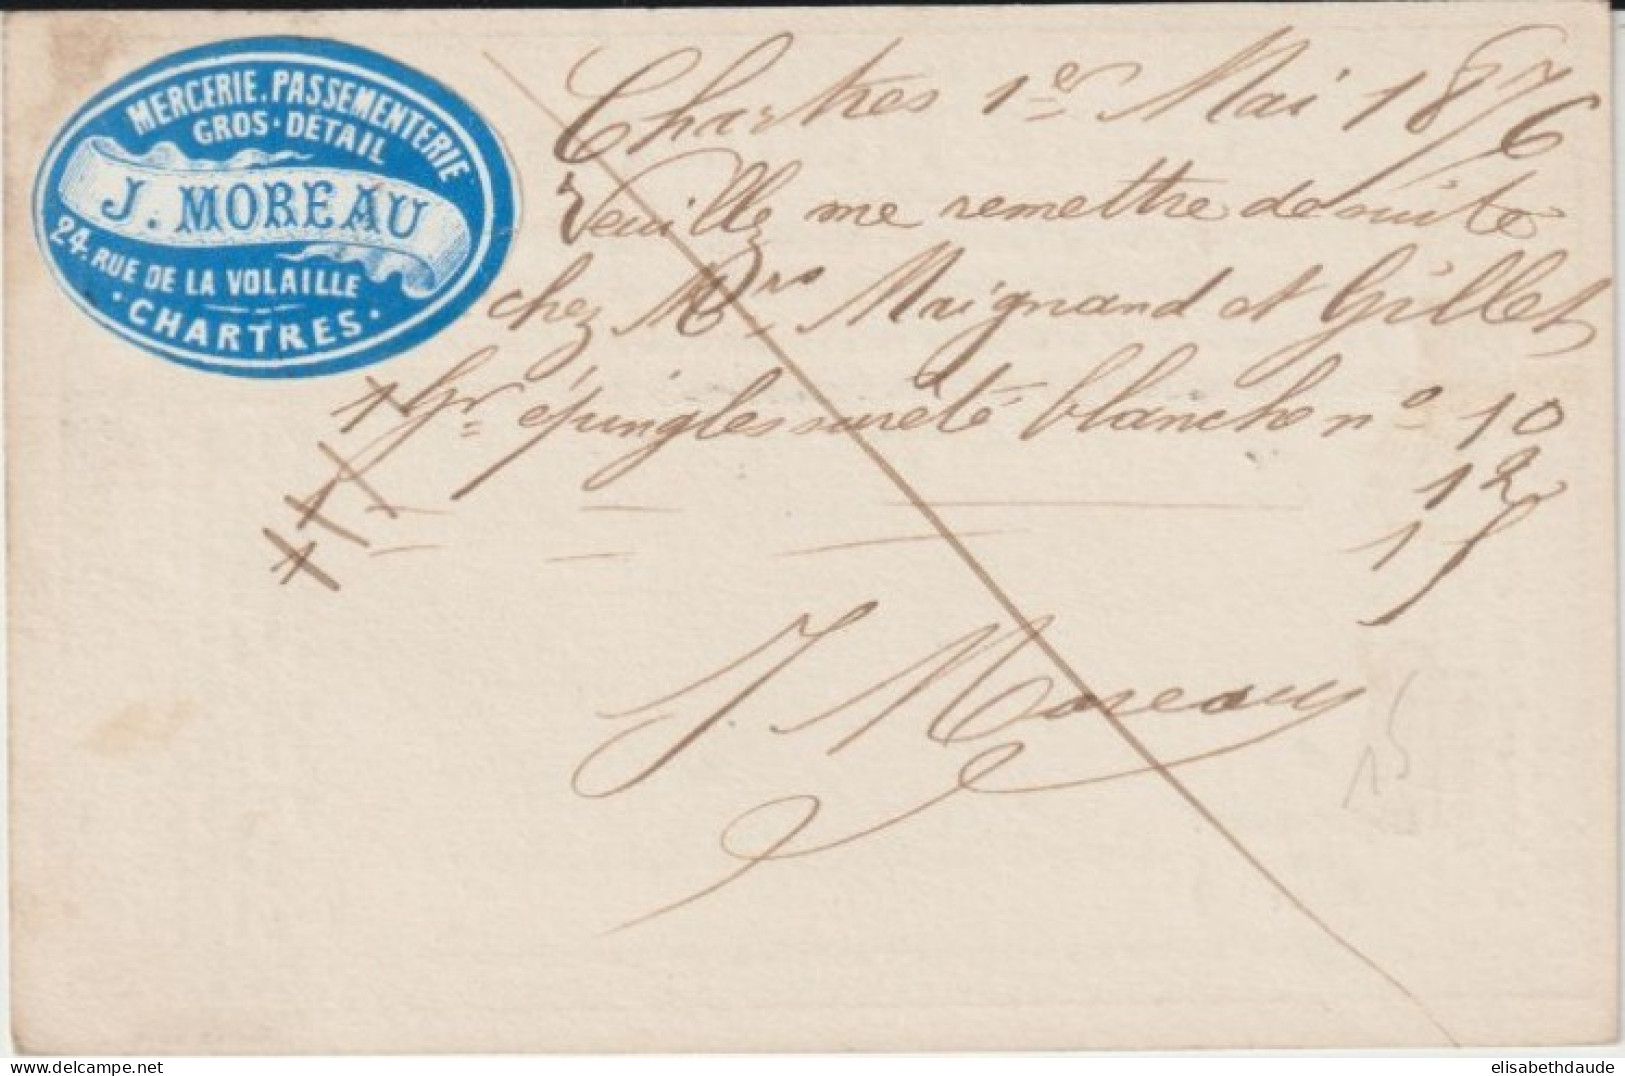 MERCERIE. PASSEMENTERIE
GROS · DÉTAIL
J. MOREAU
24. RUE DE LA VOLAILLE
· CHARTRES ·
Chartres 1er Mai 1876
Veuillez me remettre de suite
chez Mrs Maignand et Gillet
1 gr épingles sureté blanche no 10
1 — — — 12
1 — — — 15
J. Moreau
15
elisabethdaude